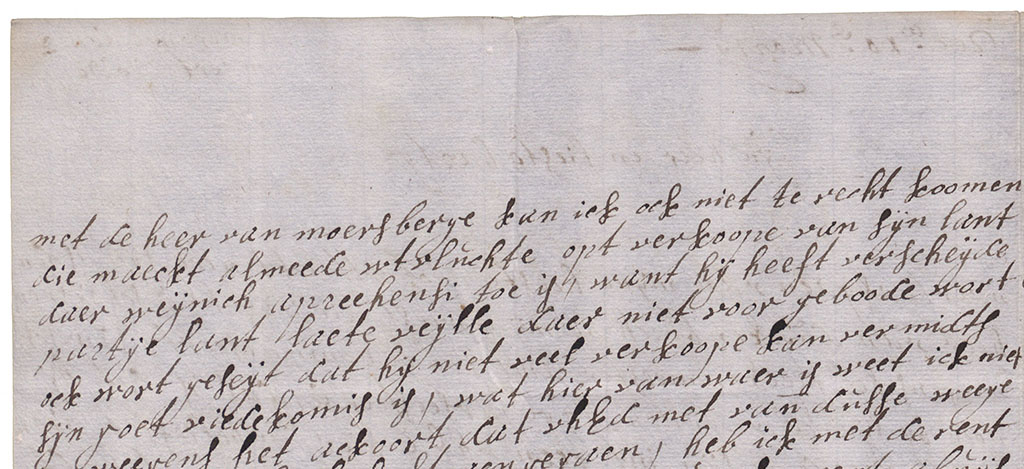 met de heer van moersberge kan ick ock niet te recht koomen
die maeckt almeede wtvluchte opt verkoope van sijn lant
daer weijnich apreehensi toe is, want hij heeft verscheijde
partije lant laete veijlle daer niet voor geboode wort
ock wort geseijt dat hij niet veel verkoope kan vermidts
sijn goet fiedekomis is, wat hier van waer is weet ick niet
weegens het ackoort dat uhEd met van dusse weege
heb ick met de rent